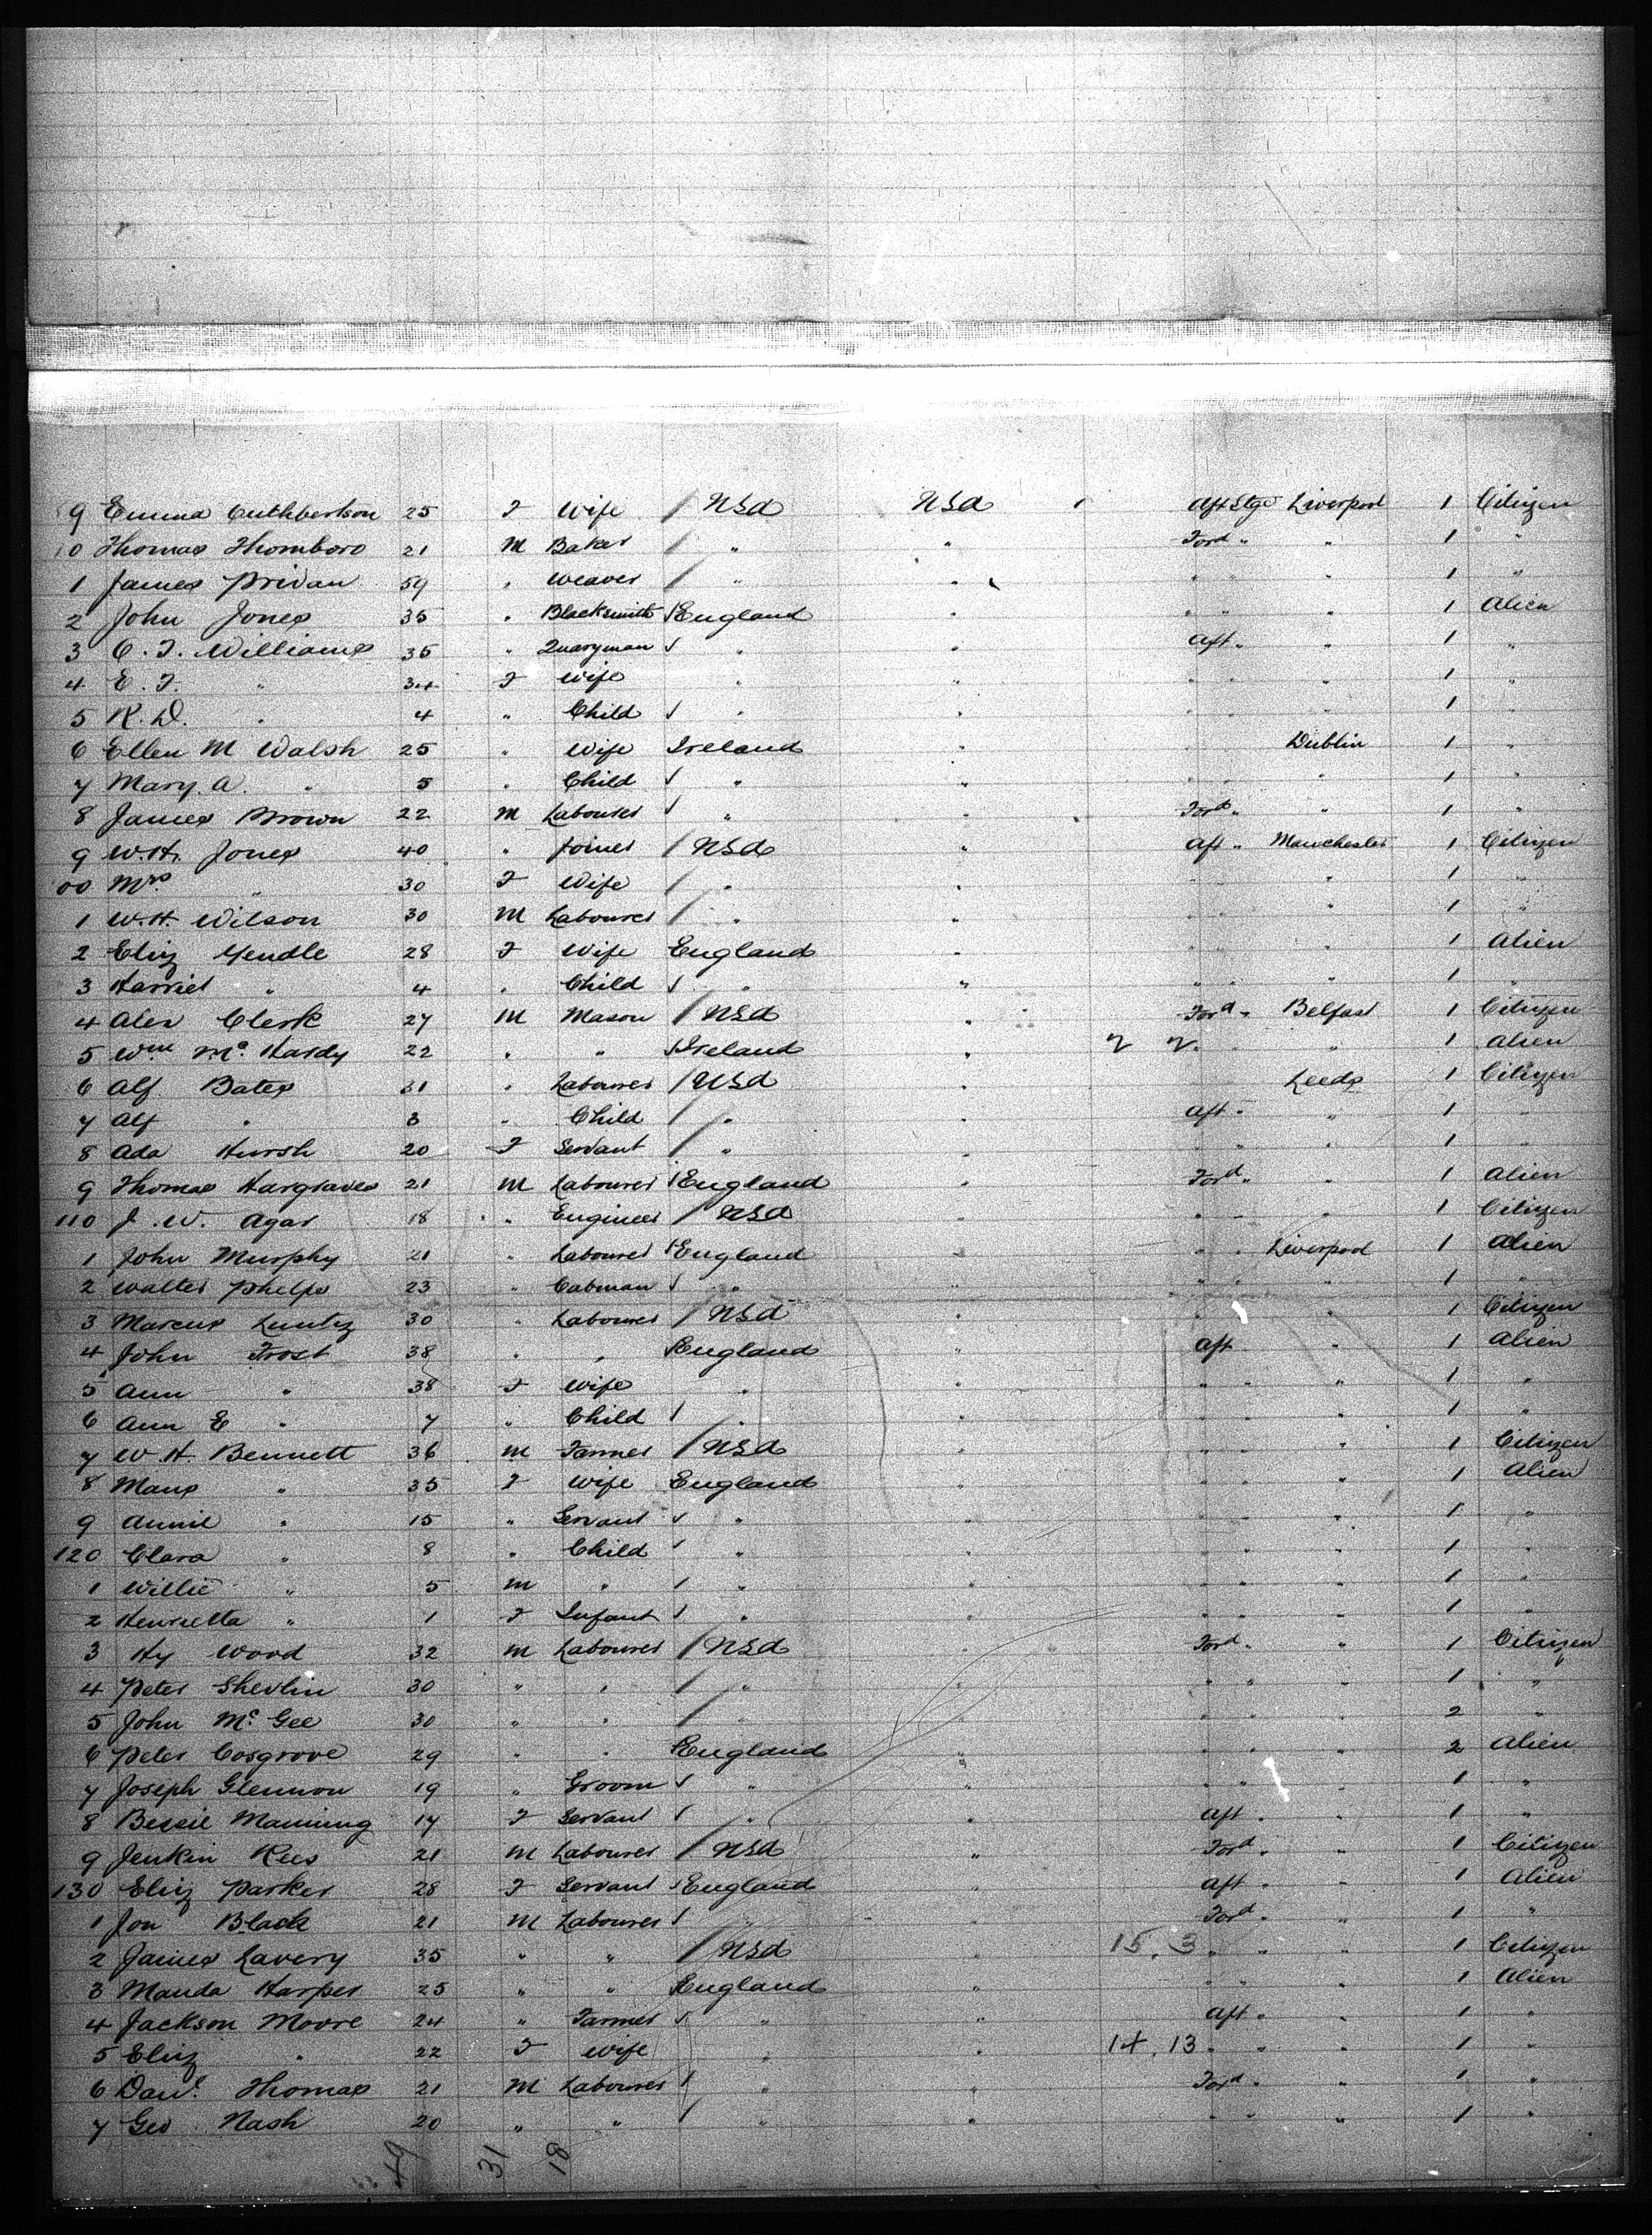 9 Emma Cuthbertson 25 F Wife / USA USA Aft Stge Liverpool 1 Citizen
10 Thomas Thomboro 21 M Baker / " " Ford " " 1 "
1 James Privan 59 " Weaver / " " " " " 1 "
2 John Jones 35 " Blacksmith England " " " " 1 Alien
3 C. T. Williams 35 " Quaryman " " Aft " " 1 "
4 E. T. " 34 F Wife " " " " " 1 "
5 R. D. " 4 " Child " " " " " 1 "
6 Ellen M Walsh 25 " Wife Ireland " " " Dublin 1 "
7 Mary. A. " 5 " Child " " " " " 1 "
8 James Brown 22 M Labourer " " Ford " " 1 "
9 W. H. Jones 40 " Joiner / USA " Aft " Manchester 1 Citizen
00 Mrs " 30 F Wife / " " " " " 1 "
1 W. H. Wilson 30 M Labourer / " " " " " 1 "
2 Eliz Yendle 28 F Wife England " " " " 1 Alien
3 Harriet " 4 " Child " " " " " 1 "
4 Alex Clerk 27 M Mason / USA " Ford " Belfast 1 Citizen
5 Wm Mc Hardy 22 " " Ireland " " " 1 Alien
6 Alf Bates 31 " Labourer / USA " Leeds 1 Citizen
7 Alf " 3 " Child / " " Aft " " 1 "
8 Ada Hursh 20 F Servant / " " " " " 1 "
9 Thomas Hargraves 21 M Labourer England " Ford " " 1 Alien
110 J. W. Agar 18 " Engineer / USA " " " " 1 Citizen
1 John Murphy 21 " Labourer England " " " Liverpool 1 Alien
2 Walter Phelps 23 " Cabman " " " " " 1 "
3 Marcus Luntz 30 " Labourer / USA " " " " 1 Citizen
4 John Frost 38 " " England " Aft " " 1 Alien
5 Ann " 38 F Wife " " " " " 1 "
6 Ann E " 7 " Child " " " " " 1 "
7 W. H. Bennett 36 M Farmer / USA " " " " 1 Citizen
8 Mans " 35 F Wife England " " " " 1 Alien
9 Annie " 15 " Servant " " " " " 1 "
120 Clara " 8 " Child " " " " " 1 "
1 Willie " 5 M " " " " " " 1 "
2 Henrietta " 1 F Infant " " " " " 1 "
3 Hy Wood 32 M Labourer / USA " Ford " " 1 Citizen
4 Peter Shevlin 30 " " / " " " " " 1 "
5 John Mc Gee 30 " " / " " " " " 2 "
6 Peter Cosgrove 29 " " England " " " " 2 Alien
7 Joseph Glennon 19 " Groom " " " " " 1 "
8 Bessie Manning 17 F Servant " " Aft " " 1 "
9 Jenkin Rees 21 M Labourer / USA " Ford " " 1 Citizen
130 Eliz Parker 28 F Servant England " Aft " " 1 Alien
1 Jon Black 21 M Labourer " " Ford " " 1 "
2 James Lavery 35 " " / USA " 15.3 " " " 1 Citizen
3 Manda Harper 25 " " England " " " " 1 Alien
4 Jackson Moore 24 " Farmer " " Aft " " 1 "
5 Eliz " 22 F Wife " " 14.13 " " " 1 "
6 Danl Thomas 21 M Labourer " " Ford " " 1 "
7 Geo Nash 20 " " " " " " " 1 "
49 31 18